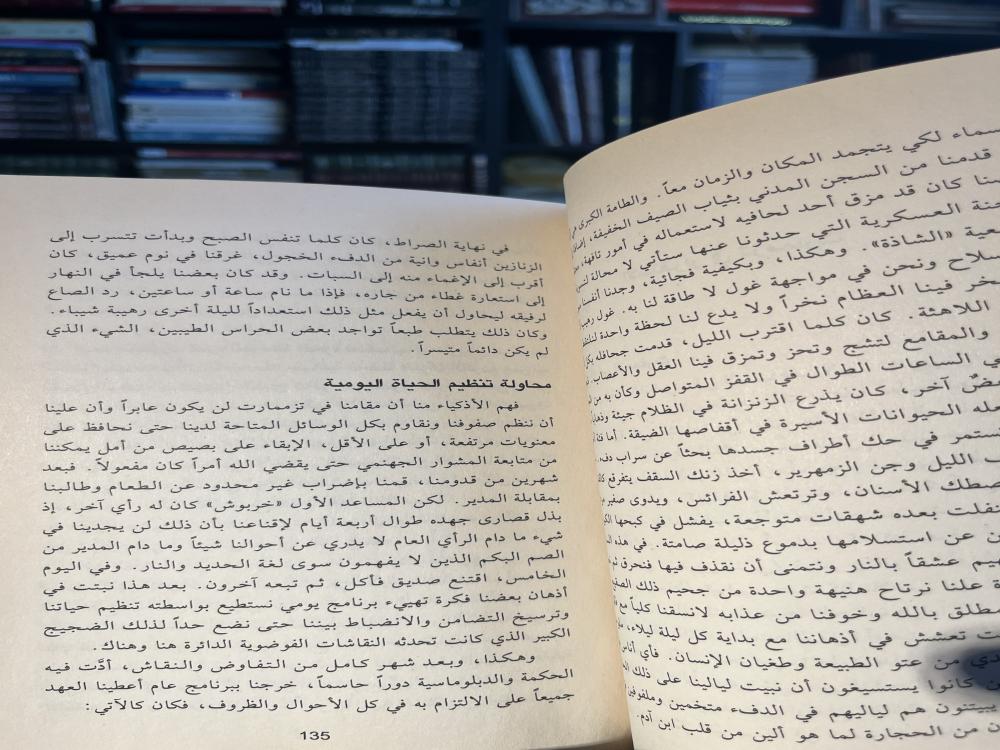 سماء لكي يتجمد المكان والزمان معاً. والطامة الكبرى
قدمنا من السجن المدني بثياب الصيف الخفيفة،
نا كان قد مزق أحد لحافيه لاستعماله في أمور تافهة،
نة العسكرية التي حدثونا عنها ستأتي لا محالة
عية «الشاذة». وهكذا، وبكيفية فجائية، وجدنا أنفسنا
سلاح ونحن في مواجهة غول لا طاقة لنا به. غول
خر فينا العظام نخراً ولا يدع لنا لحظة واحدة
اللاهثة. كان كلما اقترب الليل، قدمت جحافله
والمقامع لتشج وتحز وتمزق فينا العقل والأعصاب.
ي الساعات الطوال في القفز المتواصل وكأن به
ضٌ آخر، كان يذرع الزنزانة في الظلام جيئة
له الحيوانات الأسيرة في أقفاصها الضيقة. أما
ستمر في حك أطراف جسدها بحثاً عن سراب
ب الليل وجن الزمهرير، أخذ زنك السقف يتفرقع
صطك الأسنان، وترتعش الفرائس، ويدوى صفير
تفلت بعده شهقات متوجعة، يفشل في كبحها
ن عن استسلامها بدموع ذليلة صامتة. في هذه
هيم عشقاً بالنار ونتمنى أن نقذف فيها فنحرق
ة علنا نرتاح هنيهة واحدة من جحيم ذلك
مطلق بالله وخوفنا من عذابه لانسقنا كلياً مع
ت تعشش في أذهاننا مع بداية كل ليلة ليلاء،
دي من عتو الطبيعة وطغيان الإنسان. فأي أناس
ن كانوا يستسيغون أن نبيت ليالينا على ذلك
يبيتون هم لياليهم في الدفء متخمين وملفوفين
ن من الحجارة لما هو ألين من قلب ابن آدم.
في نهاية الصراط، كان كلما تنفس الصبح وبدأت تتسرب إلى
الزنازين أنفاس وانية من الدفء الخجول، غرقنا في نوم عميق، كان
أقرب إلى الإغماء منه إلى السبات. وقد كان بعضنا يلجأ في النهار
إلى استعارة غطاء من جاره، فإذا ما نام ساعة أو ساعتين، رد الصاع
لرفيقه ليحاول أن يفعل مثل ذلك استعداداً لليلة أخرى رهيبة شيباء.
وكان ذلك يتطلب طبعاً تواجد بعض الحراس الطيبين، الشيء الذي
لم يكن دائماً متيسراً.
محاولة تنظيم الحياة اليومية
فهم الأذكياء منا أن مقامنا في تزممارت لن يكون عابراً وأن علينا
أن ننظم صفوفنا ونقاوم بكل الوسائل المتاحة لدينا حتى نحافظ على
معنويات مرتفعة، أو على الأقل، الإبقاء على بصيص من أمل يمكننا
من متابعة المشوار الجهنمي حتى يقضي الله أمراً كان مفعولاً. فبعد
شهرين من قدومنا، قمنا بإضراب غير محدود عن الطعام وطالبنا
بمقابلة المدير. لكن المساعد الأول «خربوش» كان له رأي آخر، إذ
بذل قصارى جهده طوال أربعة أيام لإقناعنا بأن ذلك لن يجدينا في
شيء ما دام الرأي العام لا يدري عن أحوالنا شيئاً وما دام المدير من
الصم البكم الذين لا يفهمون سوى لغة الحديد والنار. وفي اليوم
الخامس، اقتنع صديق فأكل، ثم تبعه آخرون. بعد هذا نبتت في
أذهان بعضنا فكرة تهييء برنامج يومي نستطيع بواسطته تنظيم حياتنا
وترسيخ التضامن والانضباط بيننا حتى نضع حداً لذلك الضجيج
الكبير الذي كانت تحدثه النقاشات الفوضوية الدائرة هنا وهناك.
وهكذا، وبعد شهر كامل من التفاوض والنقاش، أدّت فيه
الحكمة والدبلوماسية دوراً حاسماً، خرجنا ببرنامج عام أعطينا العهد
جميعاً على الالتزام به في كل الأحوال والظروف، فكان كالآتي:
135